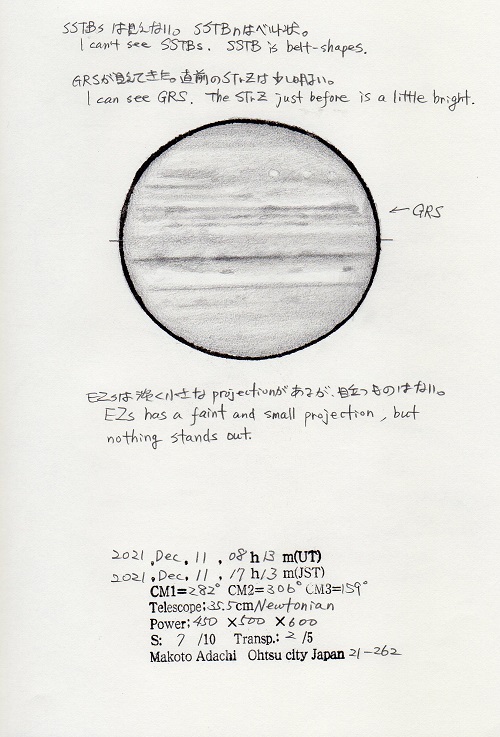 SSTBsは見えない。SSTBnはベルト状。
I can't see SSTBs. SSTB is belt-shapes.
GRSが見えてきた。直前のSTrZは少し明るい。
I can see GRS. The STrZ just before is a little bright.
← GRS
EZsは淡く小さなprojectionがあるが、目立つものはない。
EZs has a faint and small projection, but
nothing stands out.
2021, Dec, 11, 08 h 13 m(UT)
2021, Dec, 11, 17 h 13 m(JST)
CM1=282° CM2=306° CM3=159°
Telescope; 35.5cm Newtonian
Power; 450 ×500 ×600
S: 7 /10 Transp.: 2 /5
Makoto Adachi Ohtsu city Japan 21-262